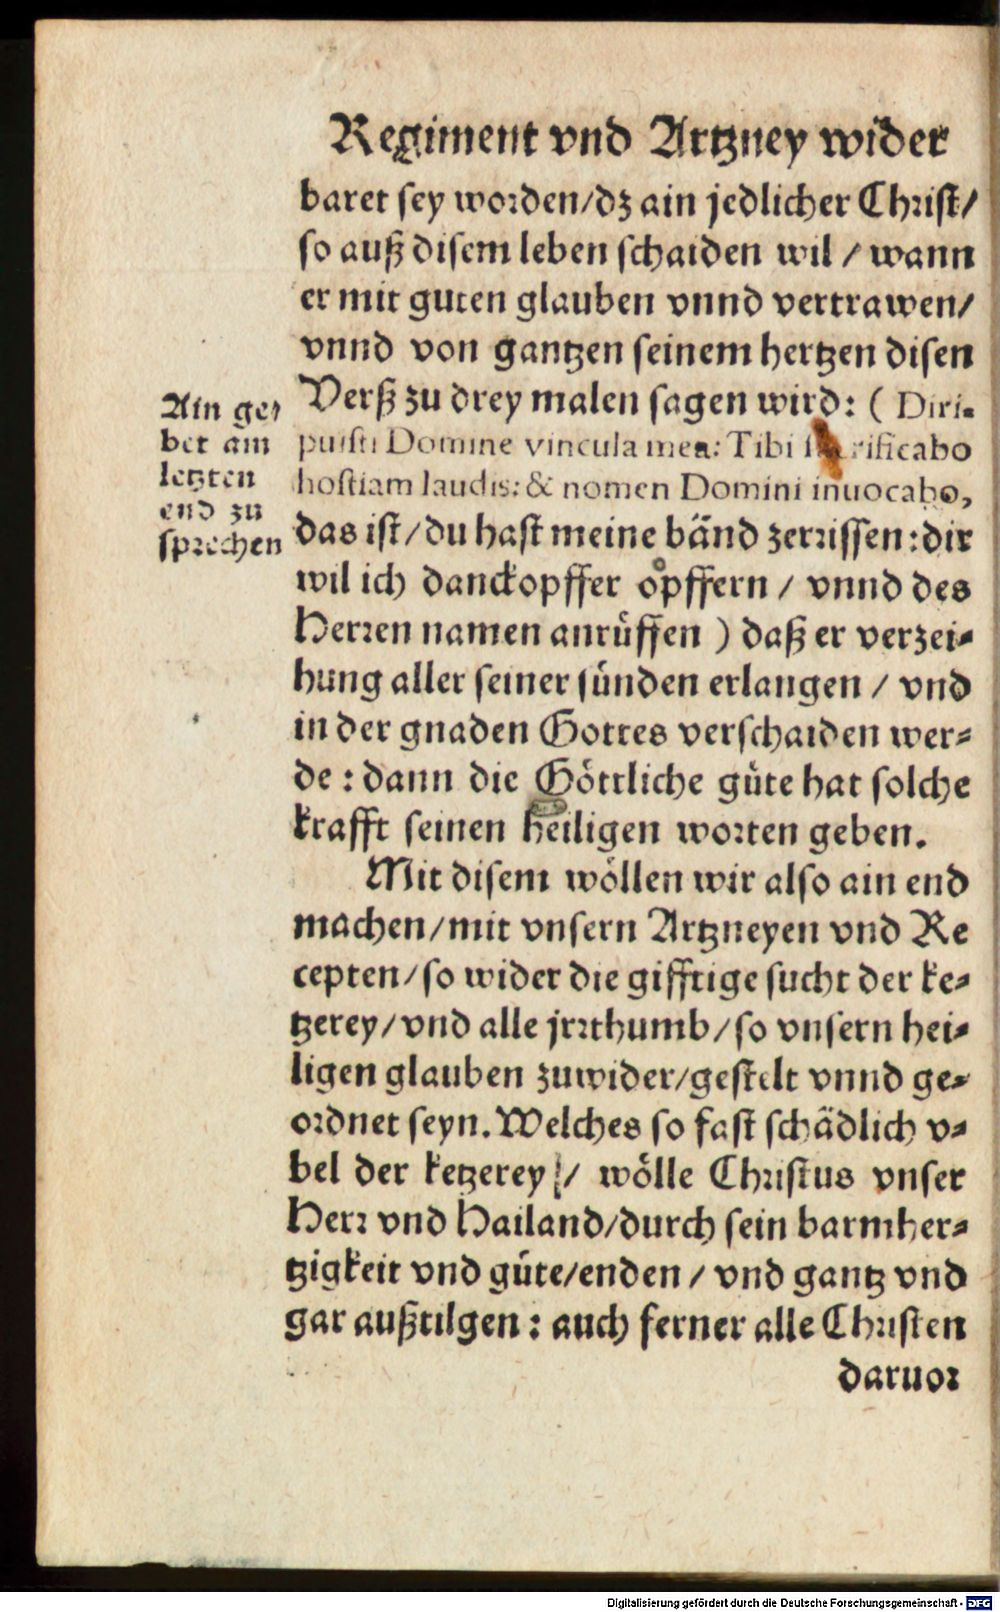 Regiment vnd Artzney wider
baret sey worden/dz ain jedlicher Christ/
so auß disem leben schaiden wil / wann
er mit guten glauben vnnd vertrawen/
vnnd von gantzen seinem hertzen disen
Verß zu drey malen sagen wird: ( Diri-
puisti Domine vincula mea: Tibi sacrificabo
hostiam laudis: & nomen Domini inuocabo,
das ist/du hast meine bänd zerrissen:dir
wil ich danckopffer oͤpffern / vnnd des
Herren namen anrüffen ) daß er verzei-
hung aller seiner sünden erlangen / vnd
in der gnaden Gottes verschaiden wer-
de : dann die Göttliche güte hat solche
krafft seinen heiligen worten geben.
Mit disem wöllen wir also ain end
machen/mit vnsern Artzneyen vnd Re
cepten/so wider die gifftige sucht der ke-
tzerey/vnd alle jrrthumb/so vnsern hei-
ligen glauben zuwider/gestelt vnnd ge-
ordnet seyn. Welches so fast schädlich v-
bel der ketzerey / wölle Christus vnser
Herr vnd Hailand/durch sein barmher-
tzigkeit vnd güte/enden / vnd gantz vnd
gar außtilgen : auch ferner alle Christen
daruor
Ain ge-
bet am
letzten
end zu
sprechen
Digitalisierung gefördert durch die Deutsche Forschungsgemeinschaft - DFG